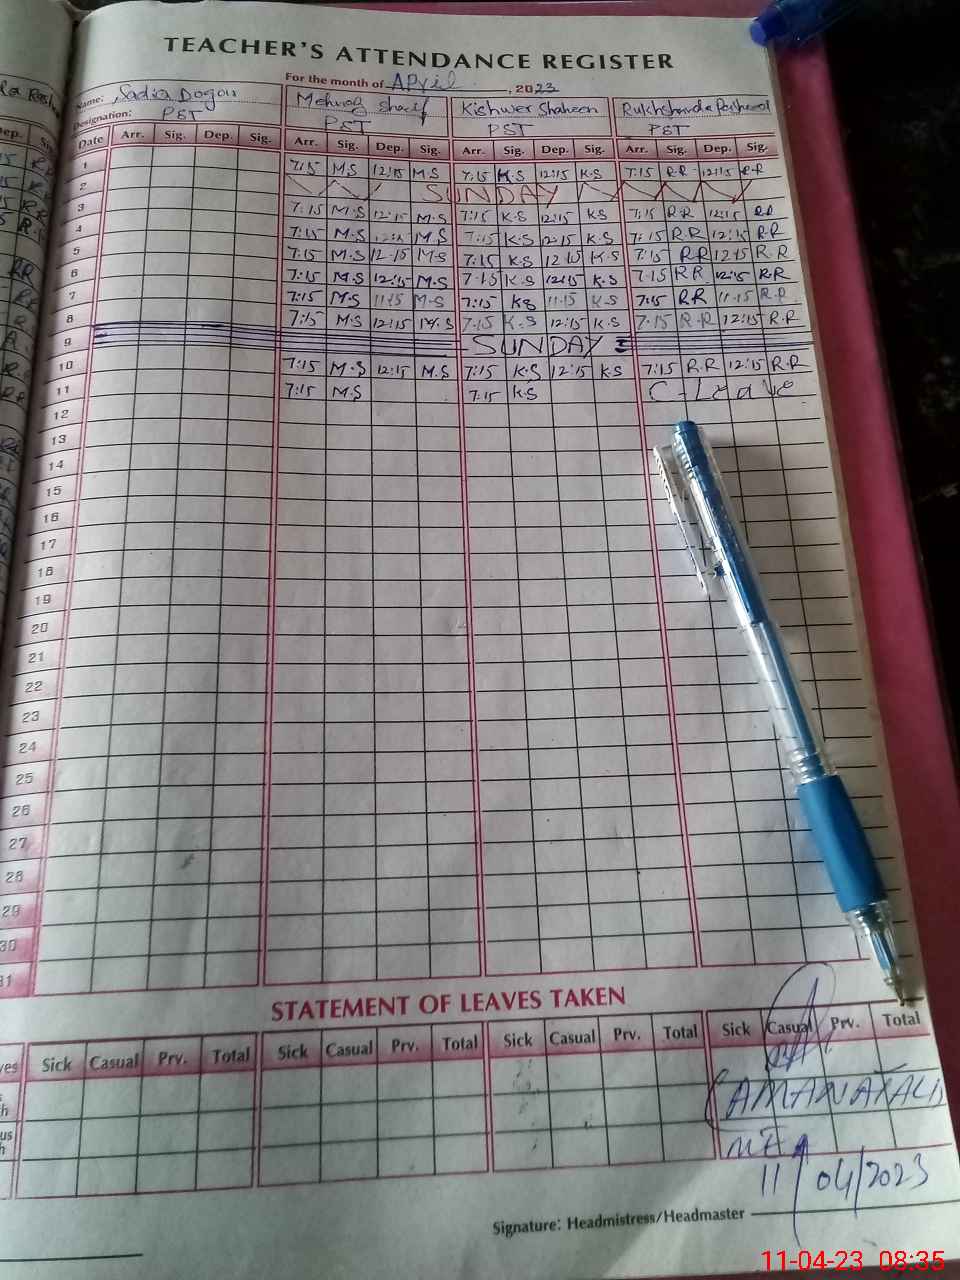 TEACHER'S ATTENDANCE REGISTER
For the month of April, 2023
Name: Sadia Dogar Mehnaz Sharif Kishwer Shaheen Rukhshanda Rasheed
Designation: PST PST PST PST
Date Arr. Sig. Dep. Sig. Arr. Sig. Dep. Sig. Arr. Sig. Dep. Sig. Arr. Sig. Dep. Sig.
1 7:15 M.S 12:15 M.S 7:15 K.S 12:15 K.S 7:15 R.R 12:15 R.R
2 SUNDAY
3 7:15 M.S 12:15 M.S 7:15 K.S 12:15 K.S 7:15 R.R 12:15 R.R
4 7:15 M.S 12:15 M.S 7:15 K.S 12:15 K.S 7:15 R.R 12:15 R.R
5 7:15 M.S 12:15 M.S 7:15 K.S 12:15 K.S 7:15 R.R 12:15 R.R
6 7:15 M.S 12:15 M.S 7:15 K.S 12:15 K.S 7:15 R.R 12:15 R.R
7 7:15 M.S 11:15 M.S 7:15 K.S 11:15 K.S 7:15 R.R 11:15 R.R
8 7:15 M.S 12:15 M.S 7:15 K.S 12:15 K.S 7:15 R.R 12:15 R.R
9 SUNDAY
10 7:15 M.S 12:15 M.S 7:15 K.S 12:15 K.S 7:15 R.R 12:15 R.R
11 7:15 M.S 7:15 K.S C-Leave
12
13
14
15
16
17
18
19
20
21
22
23
24
25
26
27
28
29
30
31
STATEMENT OF LEAVES TAKEN
Sick Casual Prv. Total Sick Casual Prv. Total Sick Casual Prv. Total Sick Casual Prv. Total
(AMANAT ALI)
MEA
11/04/2023
Signature: Headmistress/Headmaster
11-04-23 08:35